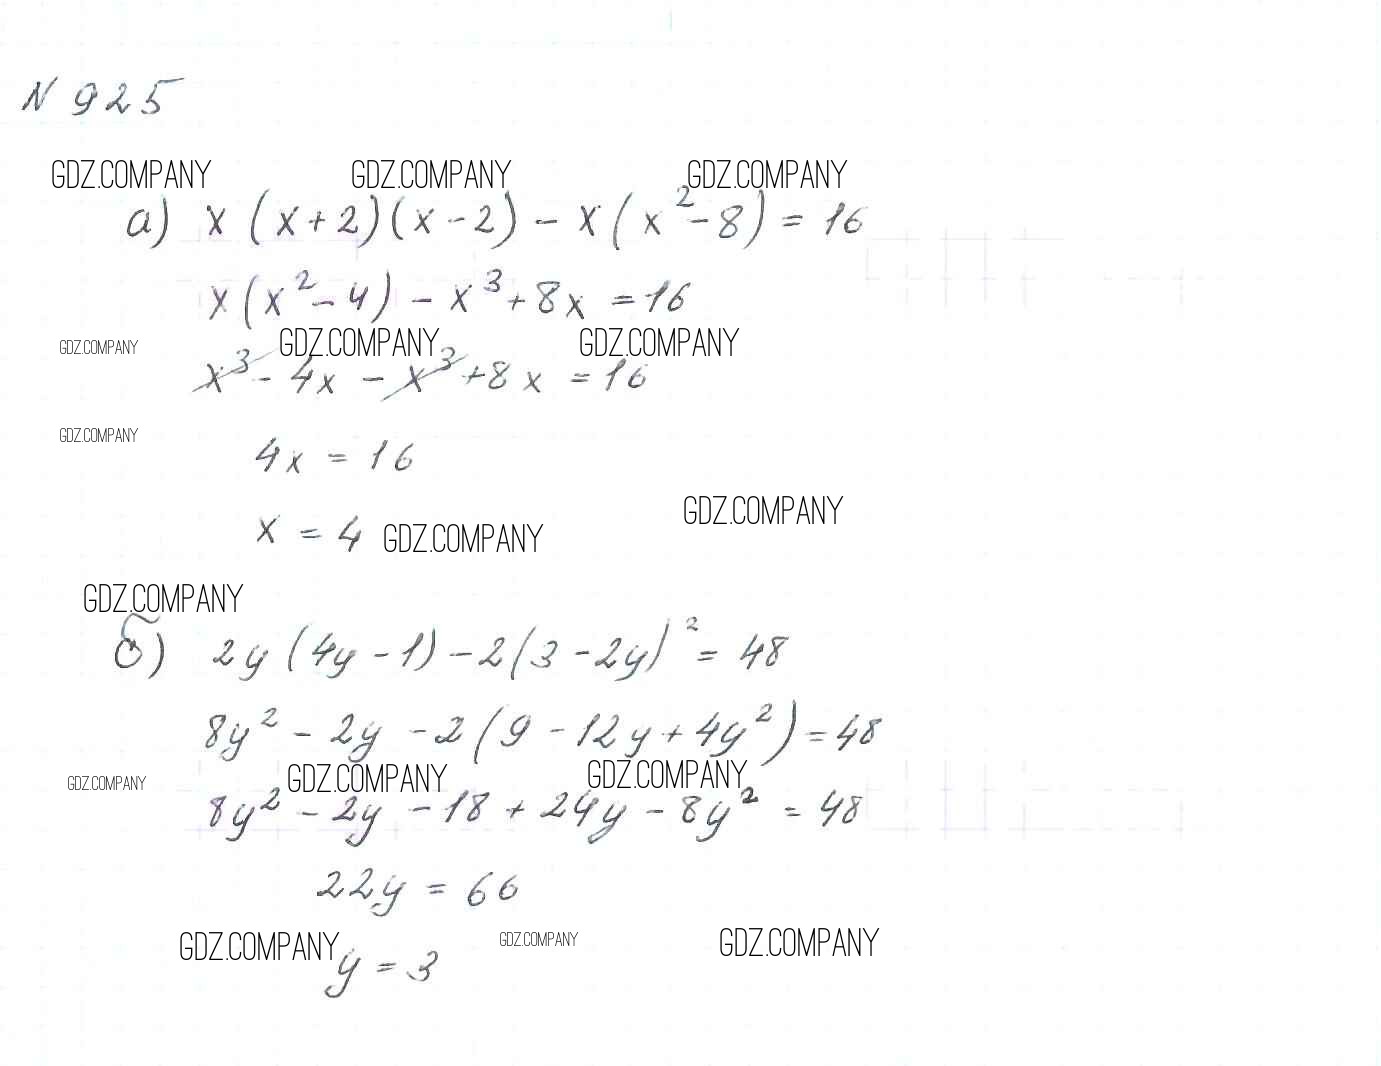 N 925
GDZ.COMPANY GDZ.COMPANY GDZ.COMPANY
а) x (x+2)(x-2) - x(x²-8) = 16
x(x²-4) - x³+8x = 16
GDZ.COMPANY GDZ.COMPANY GDZ.COMPANY
x³ - 4x - x³ +8x = 16
GDZ.COMPANY
4x = 16
GDZ.COMPANY
x = 4 GDZ.COMPANY
GDZ.COMPANY
б) 2y (4y-1) - 2(3-2y)² = 48
8y² - 2y - 2(9-12y+4y²) = 48
GDZ.COMPANY GDZ.COMPANY GDZ.COMPANY
8y² - 2y - 18 + 24y - 8y² = 48
22y = 66
GDZ.COMPANY GDZ.COMPANY GDZ.COMPANY
y = 3